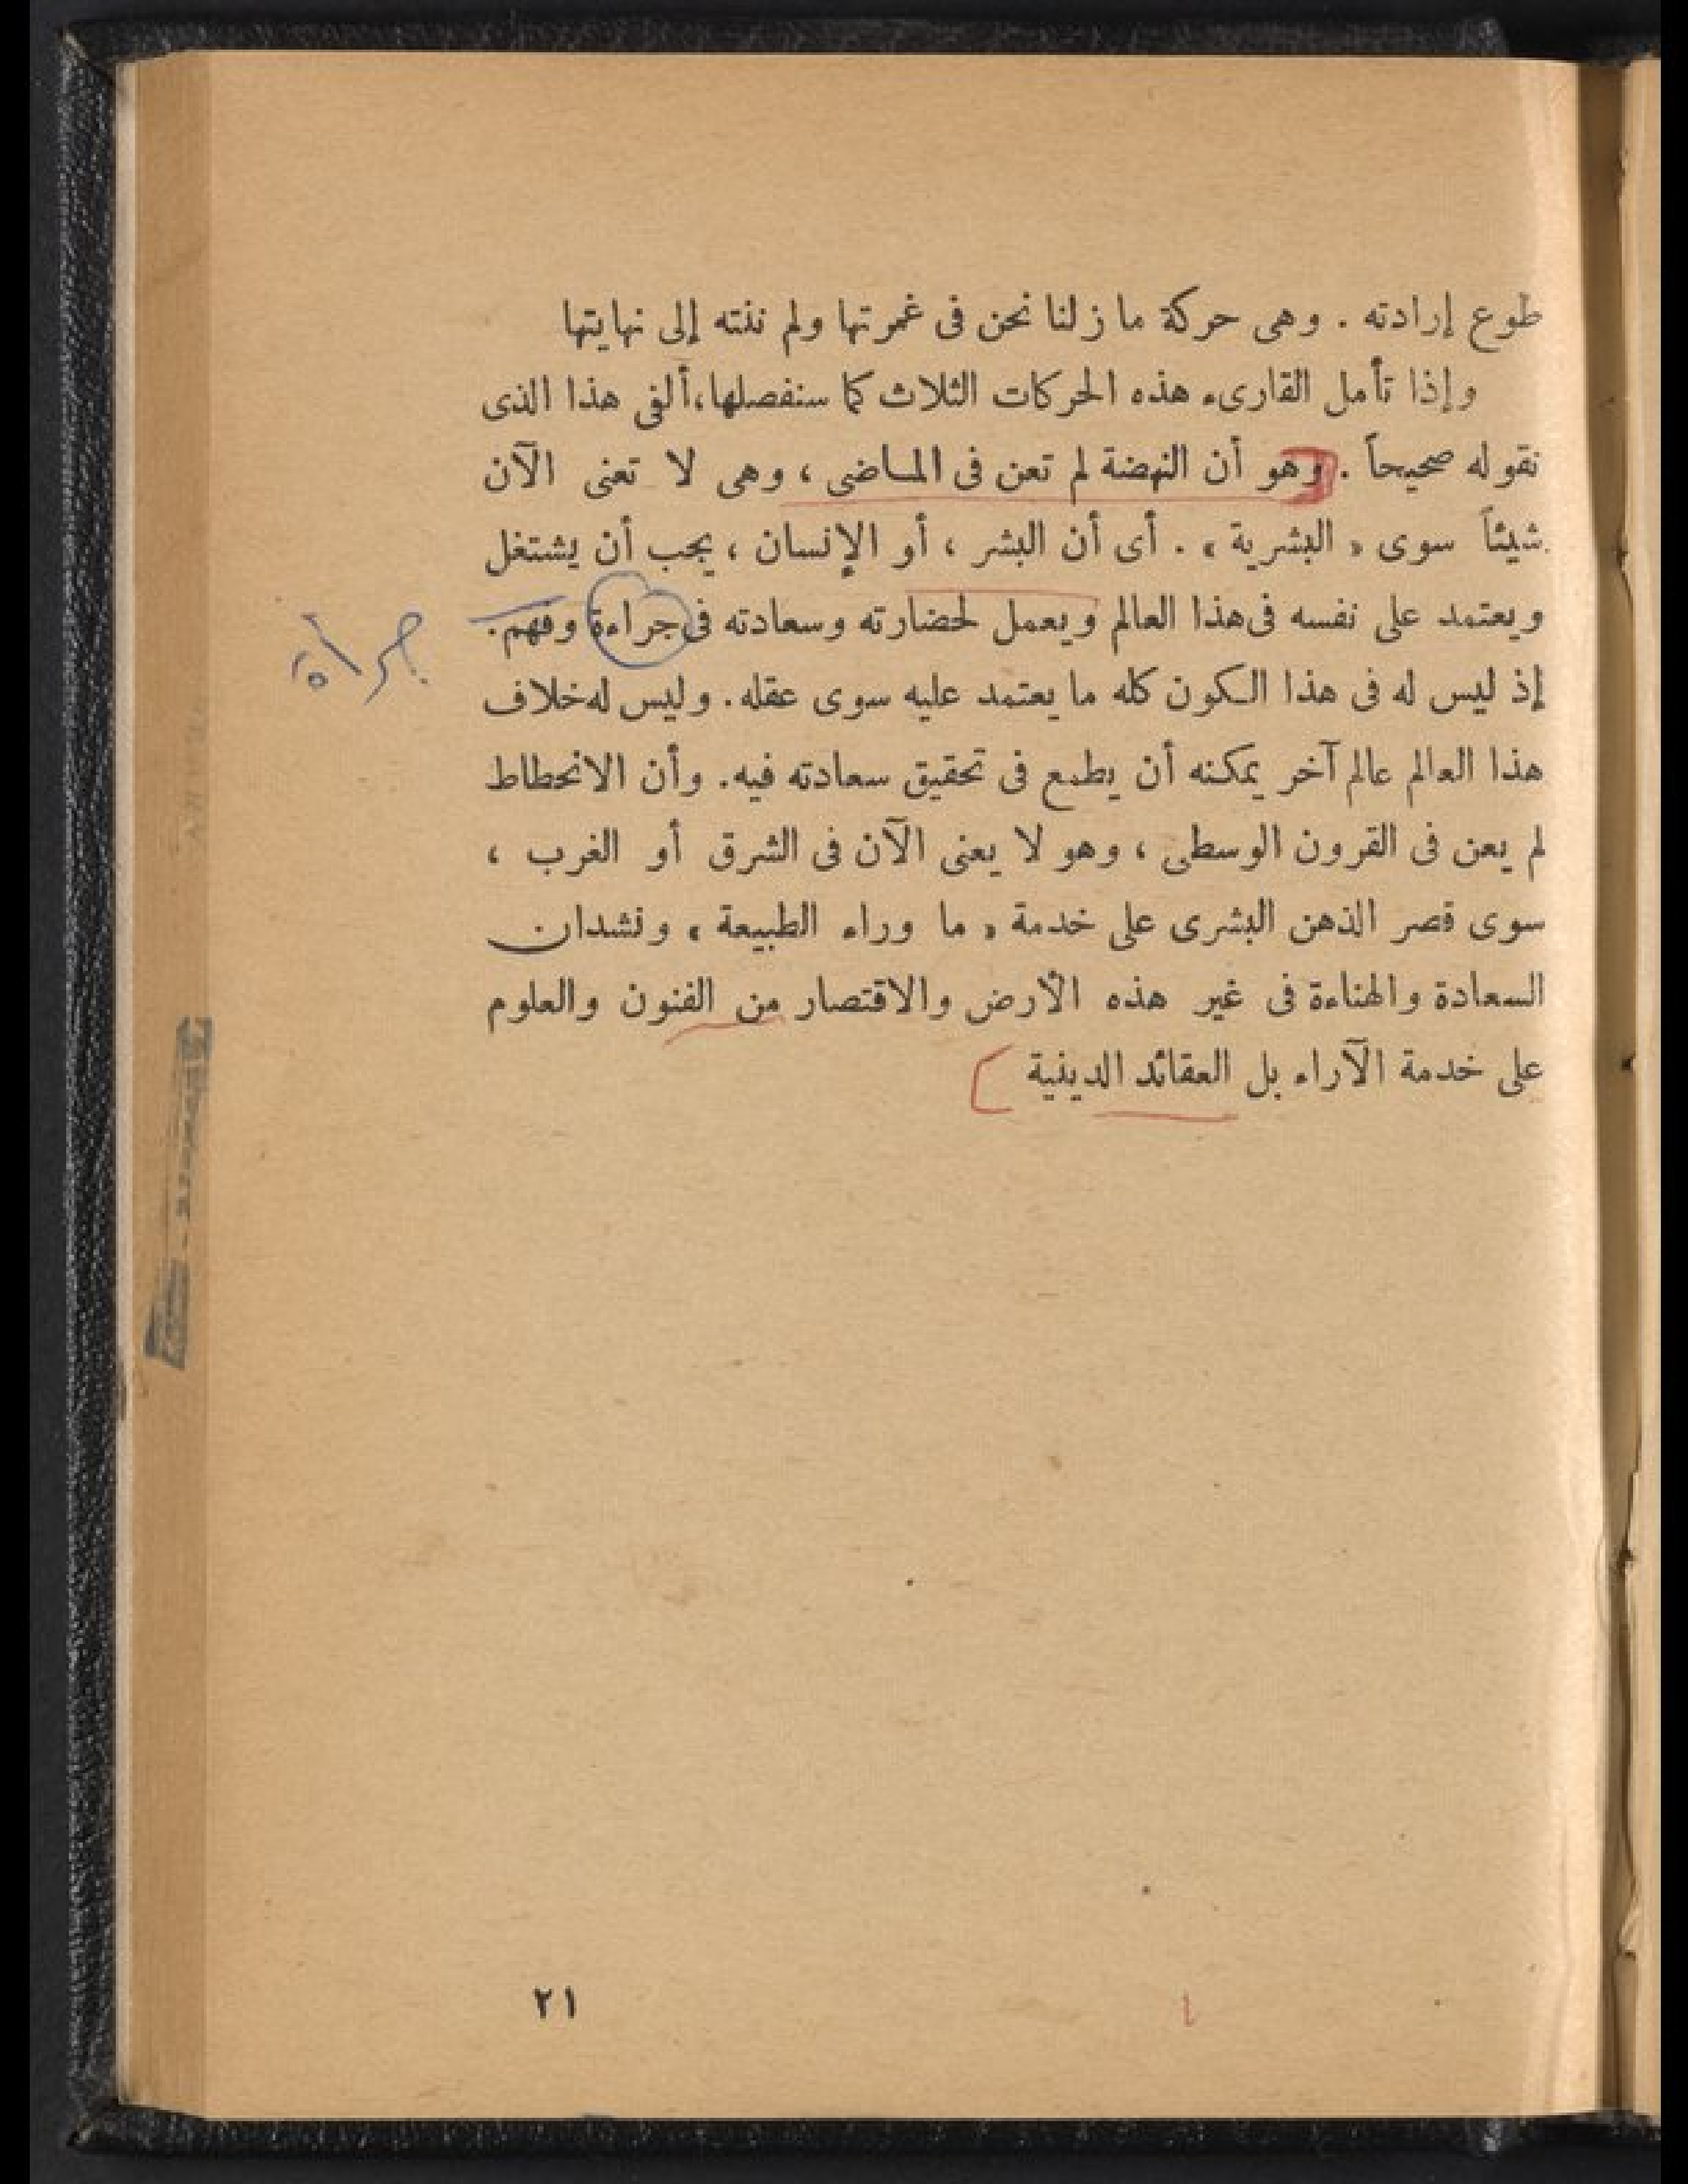 طوع إرادته . وهى حركة ما زلنا نحن فى غمرتها ولم ننته إلى نهايتها
وإذا تأمل القارىء هذه الحركات الثلاث كما سنفصلها، ألفى هذا الذى
نقوله صحيحاً . وهو أن النهضة لم تعن فى الماضى ، وهى لا تعنى الآن
شيئاً سوى « البشرية » . أى أن البشر ، أو الإنسان ، يجب أن يشتغل
ويعتمد على نفسه فى هذا العالم ويعمل لحضارته وسعادته فى جراءة وفهم .
جرأة
إذ ليس له فى هذا الكون كله ما يعتمد عليه سوى عقله . وليس له خلاف
هذا العالم عالم آخر يمكنه أن يطمع فى تحقيق سعادته فيه . وأن الانحطاط
لم يعن فى القرون الوسطى ، وهو لا يعنى الآن فى الشرق أو الغرب ،
سوى قصر الذهن البشرى على خدمة « ما وراء الطبيعة » ونشدان
السعادة والهناءة فى غير هذه الأرض والاقتصار من الفنون والعلوم
على خدمة الآراء بل العقائد الدينية
٢١